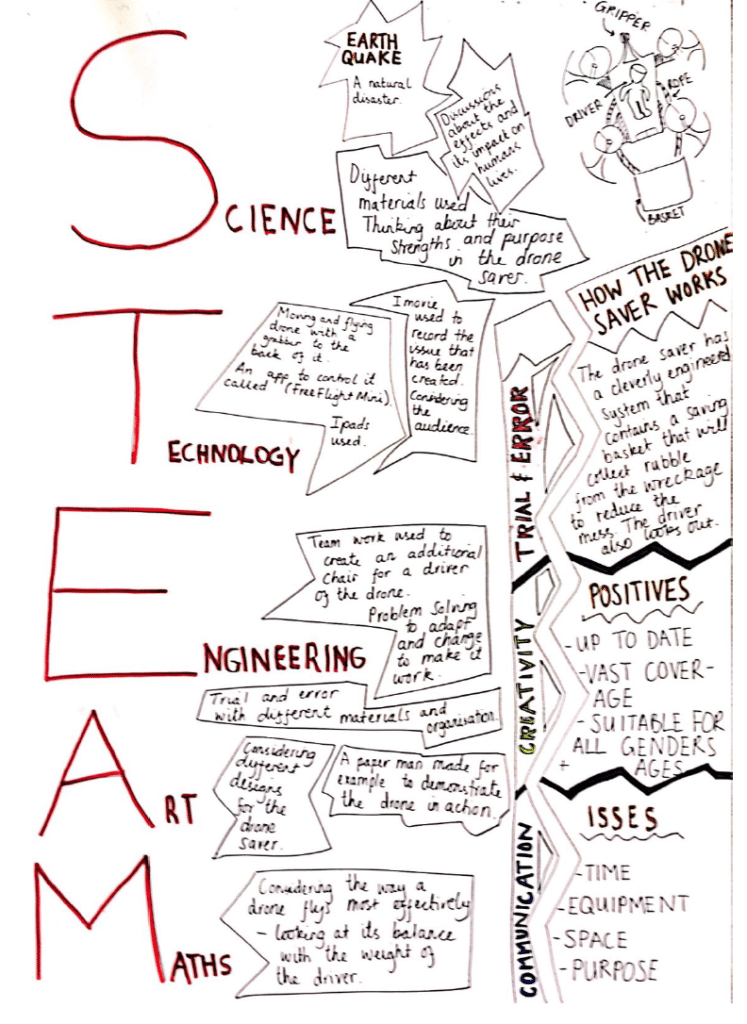 SCIENCE
EARTH
QUAKE
A natural
disaster.
Discussions
about the
effects and
its impact on
humans
lives.
Different
materials used
Thinking about their
strengths and purpose
in the drone
saver.
GRIPPER
DRIVER
ROPE
BASKET
TECHNOLOGY
Moving and flying
drone with a
grabber to the
back of it.
An app to control it
called (FreeFlight Mini).
Ipads
used.
Imovie
used to
record the
issue that
has been
created.
Considering
the
audience.
ENGINEERING
Team work used to
create an additional
chair for a driver
of the drone.
Problem solving
to adapt
and change
to make it
work.
Trial and error
with different materials and
organisation.
ART
Considering
different
designs
for the
drone
saver.
A paper man made for
example to demonstrate
the drone in action.
MATHS
Considering the way a
drone flys most effectively
- looking at its balance
with the weight of
the driver.
TRIAL & ERROR
CREATIVITY
COMMUNICATION
HOW THE DRONE
SAVER WORKS
The drone saver has
a cleverly engineered
system that
contains a saving
basket that will
collect rubble
from the wreckage
to reduce the
mess. The driver
also looks out.
POSITIVES
- UP TO DATE
- VAST COVER-
AGE
- SUITABLE FOR
ALL GENDERS
+ AGES
ISSES
- TIME
- EQUIPMENT
- SPACE
- PURPOSE